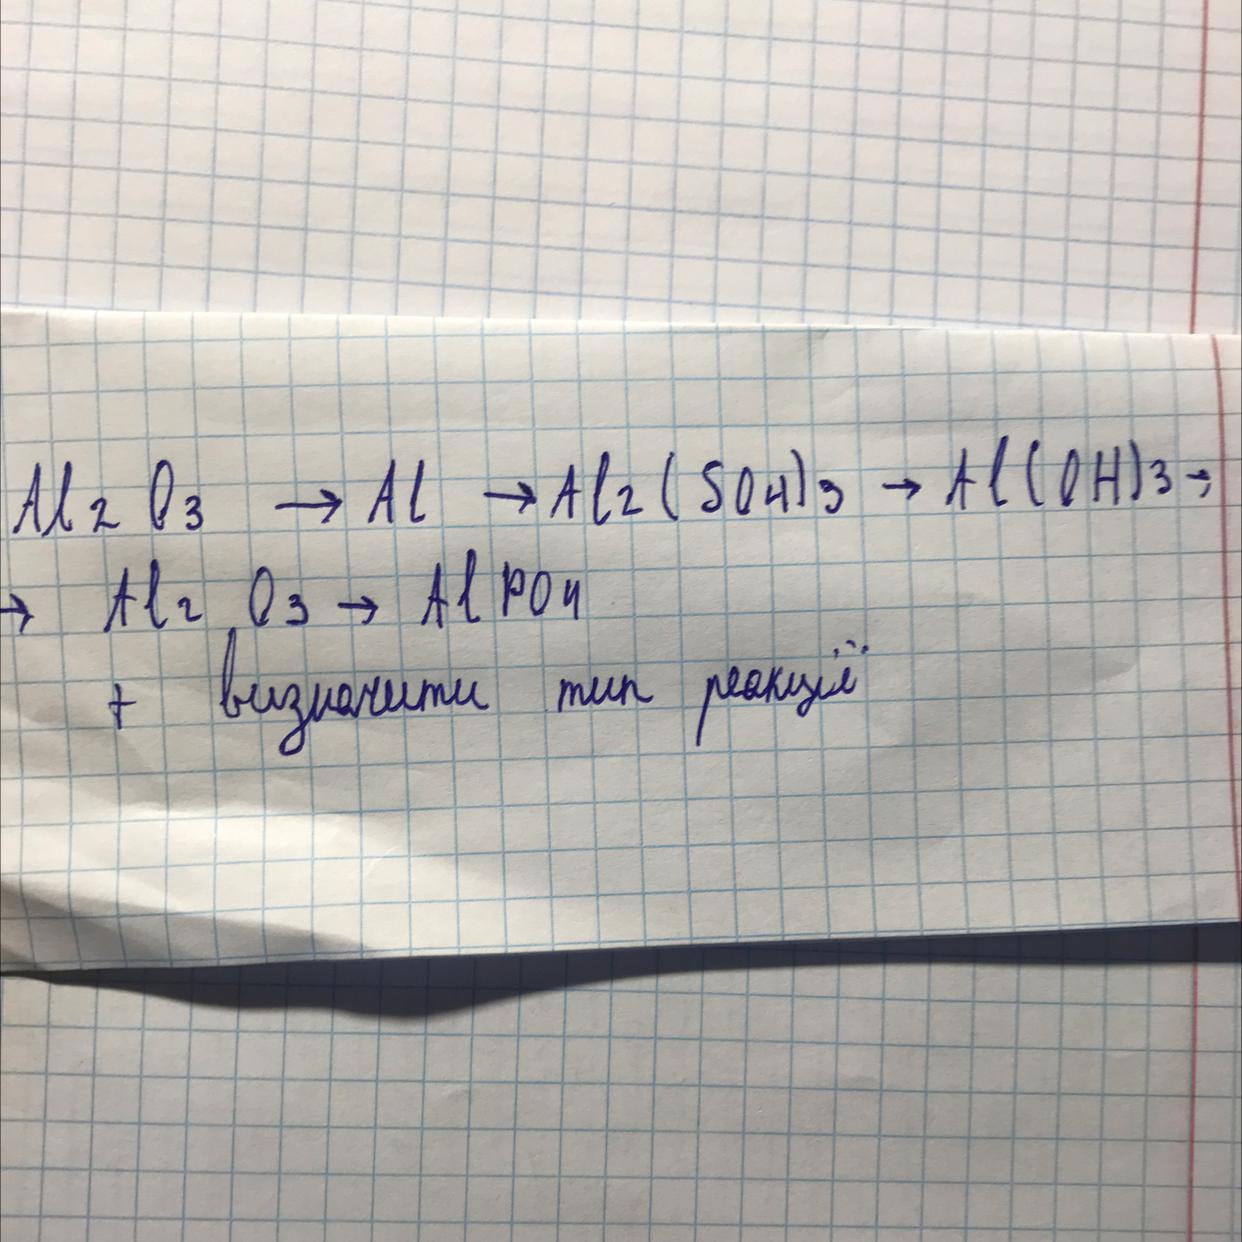 Al2O3 → Al → Al2(SO4)3 → Al(OH)3 →
→ Al2O3 → AlPO4
+ визначити тип реакції